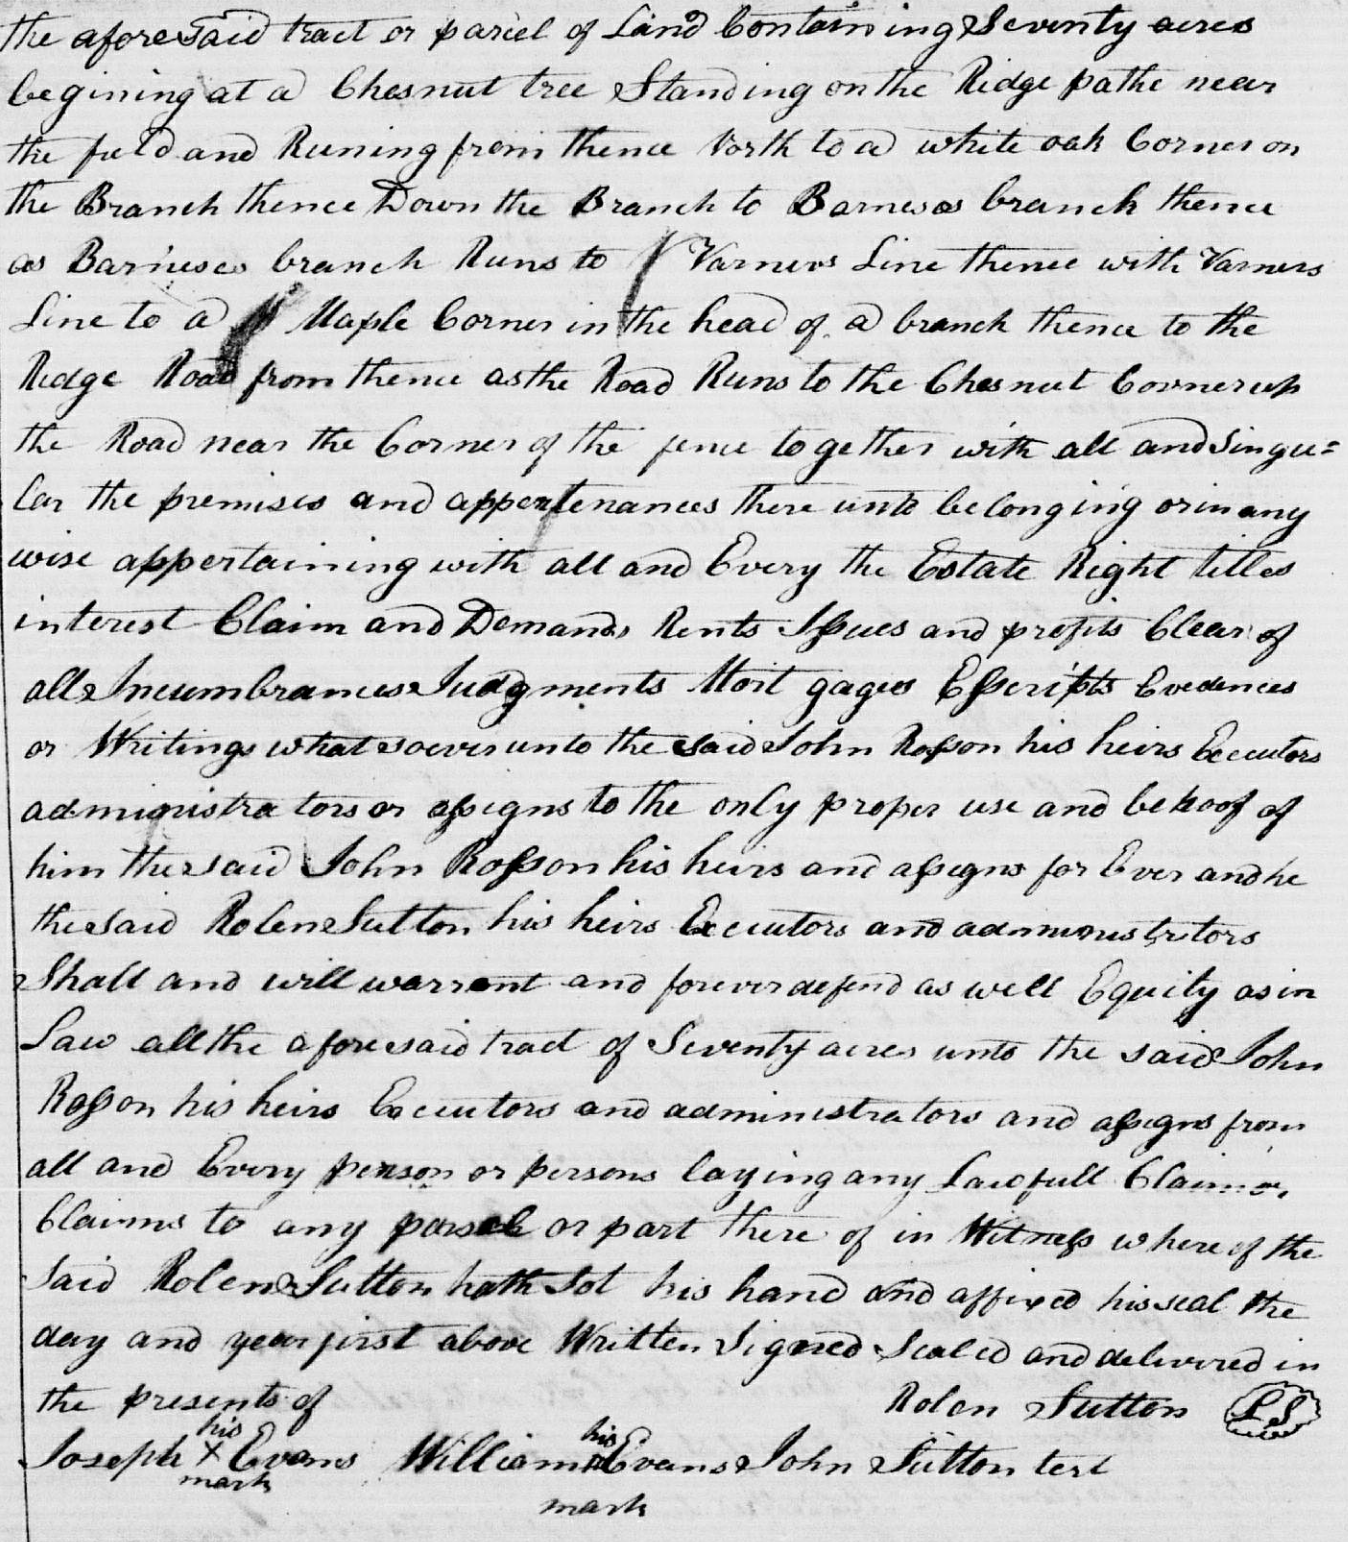 the aforesaid tract or parcel of Land Containing Seventy acres
begining at a Chesnut tree Standing on the Ridge pathe near
the field and Runing from thence North to a white oak Corner on
the Branch thence Down the Branch to Barneses branch thence
as Barneses branch Runs to Varners Line thence with Varners
Line to a Maple Corner in the head of a branch thence to the
Ridge Road from thence as the Road Runs to the Chesnut Corner up
the Road near the Corner of the fence together with all and Singu=
lar the premises and appertenances there unto belonging or in any
wise appertaining with all and Every the Estate Right titles
interest Claim and Demands Rents Issues and profits Clear of
all Incumbrances Judgments Mortgages Esscripts Evedences
or Writings whatsoever unto the said John Rosson his heirs Executors
administrators or assigns to the only proper use and behoof of
him the said John Rosson his heirs and assigns for Ever and he
the said Rolen Sutton his heirs Executors and administrators
Shall and will warrent and forever defend as well Equity as in
Law all the aforesaid tract of Seventy acres unto the said John
Rosson his heirs Executors and administrators and assigns from
all and Every person or persons laying any Lawfull Claim or
Claims to any parsel or part there of in Witness where of the
said Rolen Sutton hath Sot his hand and affixed his seal the
day and year first above Written Signed Sealed and delivered in
the presents of Rolen Sutton LS
his his
Joseph X Evans William Evans John Sutton test
mark mark